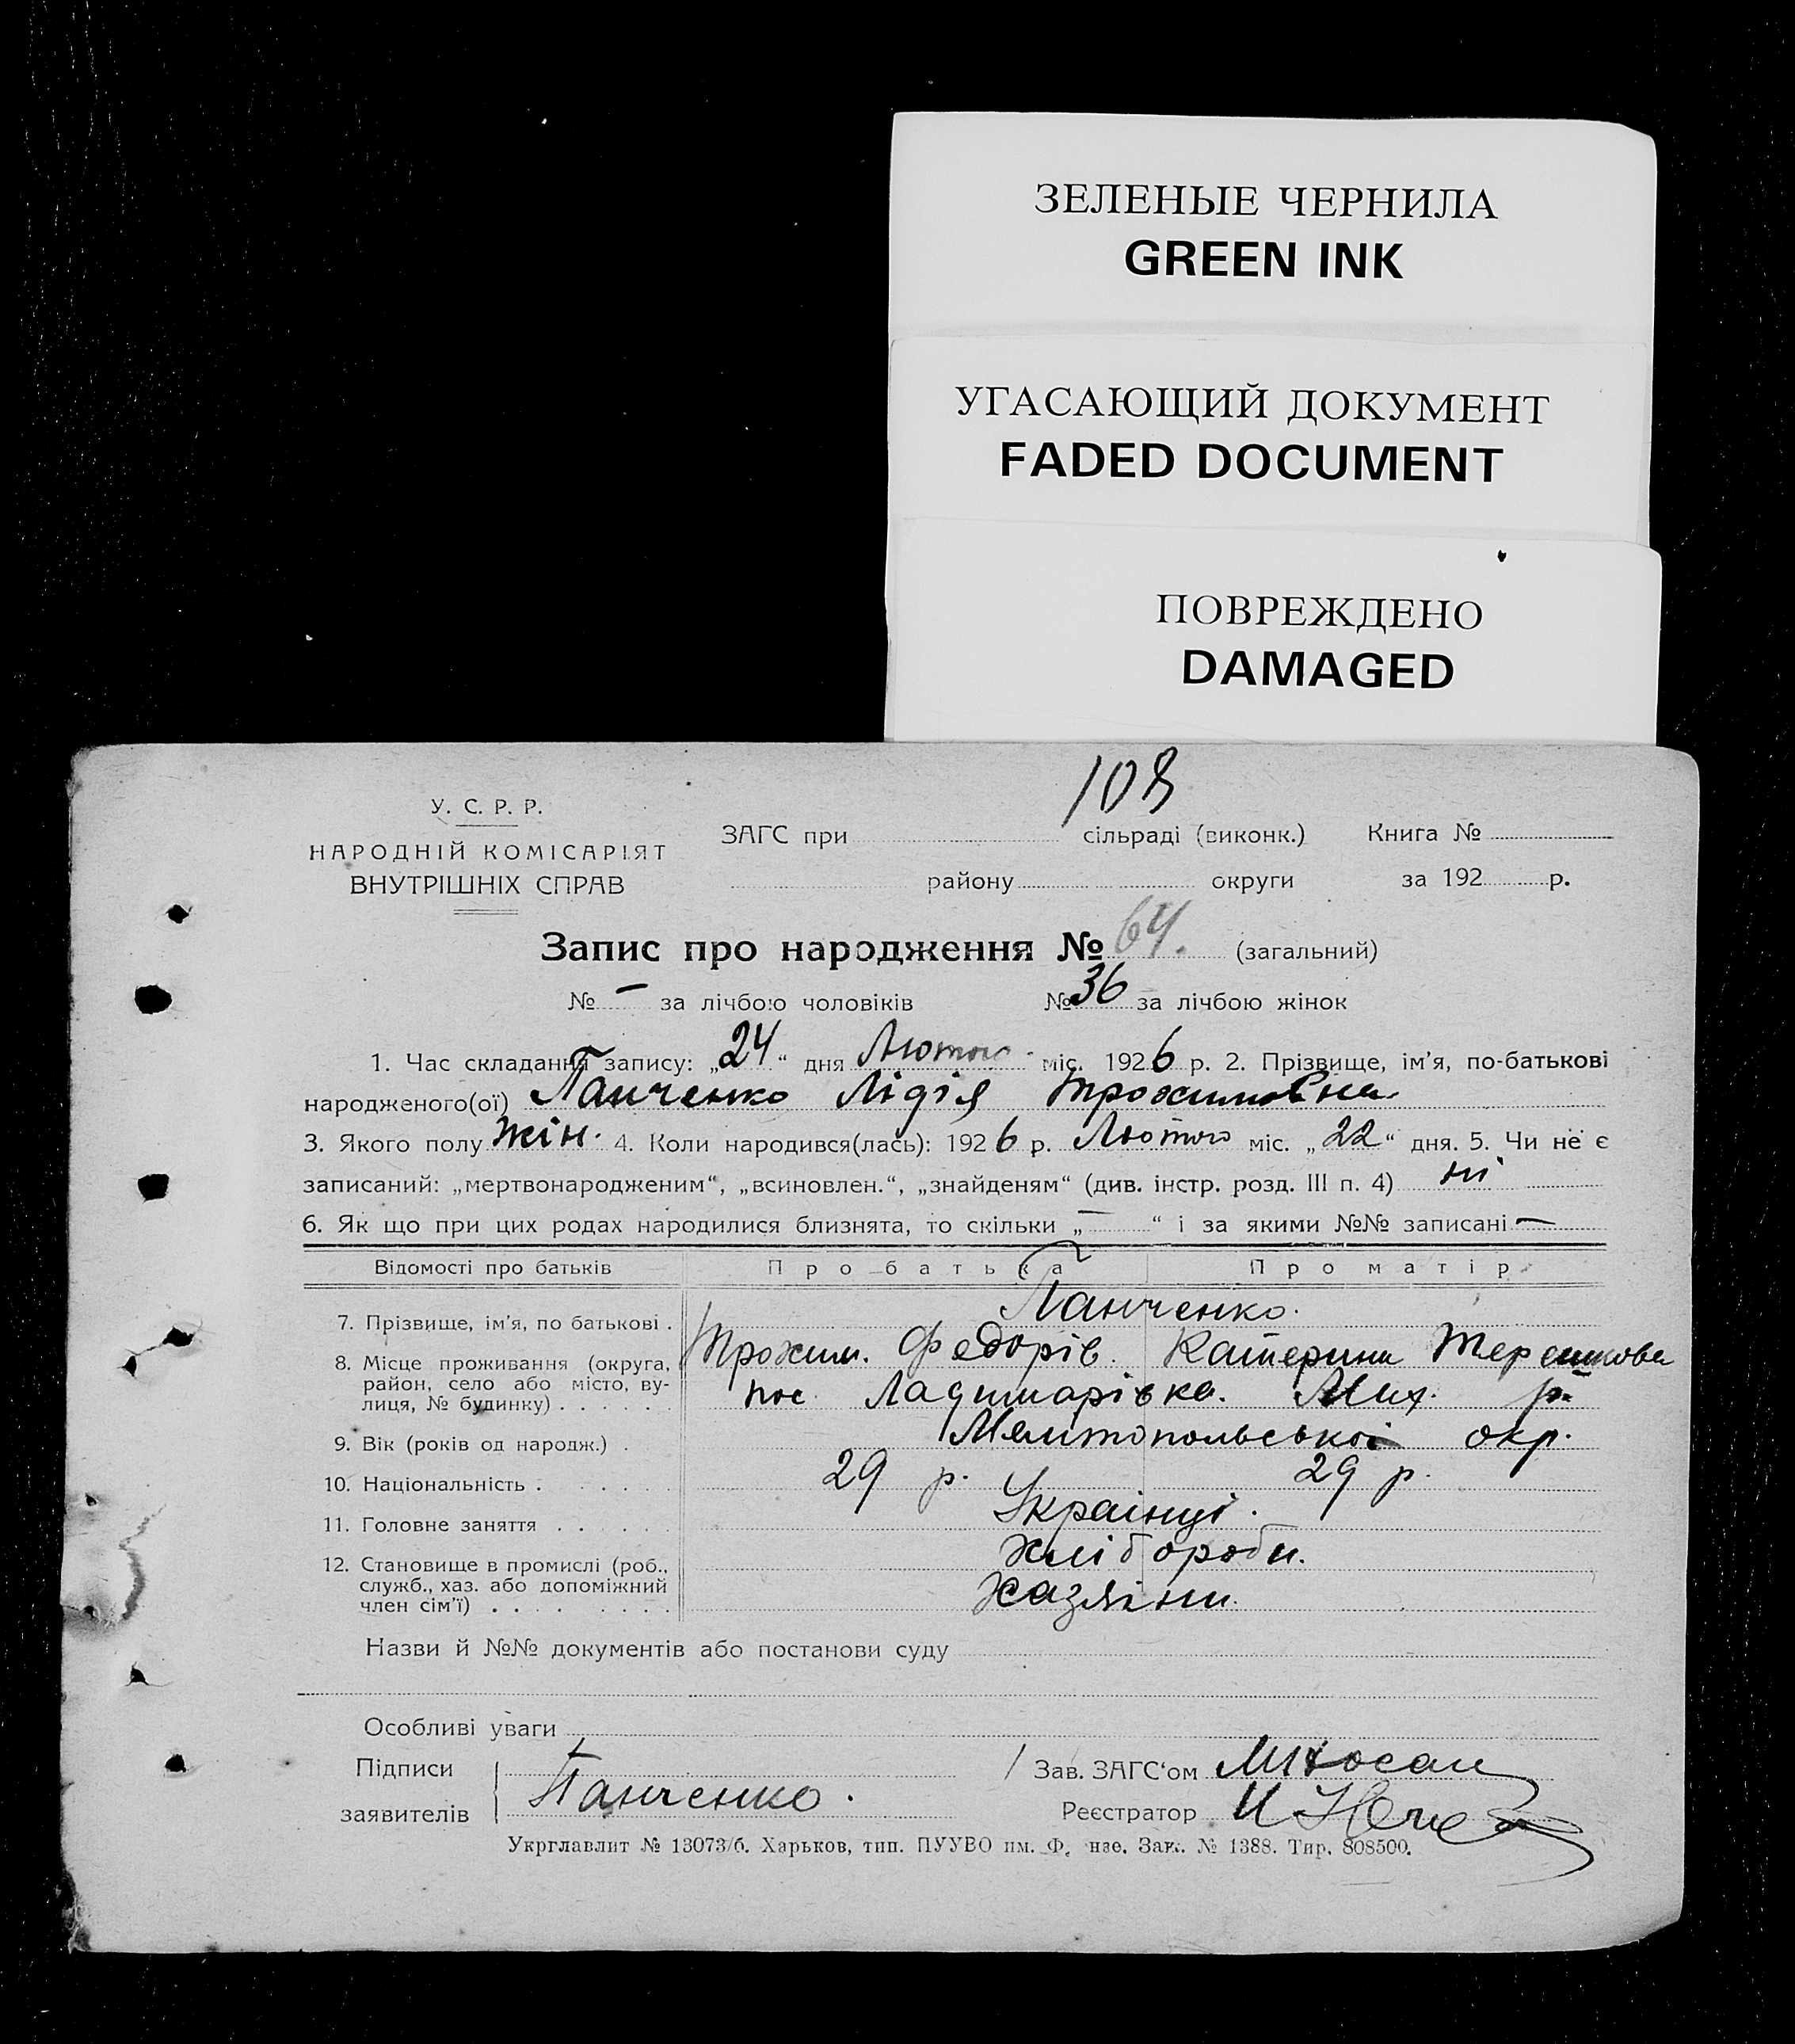 ЗЕЛЕНЫЕ ЧЕРНИЛА
GREEN INK
УГАСАЮЩИЙ ДОКУМЕНТ
FADED DOCUMENT
ПОВРЕЖДЕНО
DAMAGED
108
У. С. Р. Р.
НАРОДНІЙ КОМІСАРІЯТ
ВНУТРІШНІХ СПРАВ
ЗАГС при сільраді (виконк.) Книга №
району округи за 192 р.
Запис про народження № 64. (загальний)
№ — за лічбою чоловіків № 36 за лічбою жінок
1. Час складання запису: „24“ дня Лютого міс. 1926 р. 2. Прізвище, ім'я, по-батькові
народженого(ої) Панченко Лідія Трохимовна
3. Якого полу жін. 4. Коли народився(лась): 1926 р. Лютого міс. „22“ дня. 5. Чи не є
записаний: „мертвонародженим“, „всиновлен.“, „знайденям“ (див. інстр. розд. III п. 4) ні
6. Як що при цих родах народилися близнята, то скільки „—“ і за якими №№ записані —
Відомості про батьків Про батька Про матір
7. Прізвище, ім'я, по батькові . Панченко.
Трохим. Федорів. Катерина Терешкова
8. Місце проживання (округа,
район, село або місто, ву-
лиця, № будинку) . . . . . . пос. Ладимарівка. Мих. р.
Мелітопольської окр.
9. Вік (років од народж.) . 29 р. 29 р.
10. Національність . . . . . . Українці.
11. Головне заняття . . . . . Хлібороби.
12. Становище в промислі (роб.,
служб., хаз. або допоміжний
член сім'ї) . . . . . . . . Хазяіни.
Назви й №№ документів або постанови суду
Особливі уваги
Підписи
заявителів Панченко.
Зав. ЗАГС'ом
Реєстратор
Укрглавлит № 13073/б. Харьков, тип. ПУУВО им. Ф. нзе. Зак. № 1388. Тир. 808500.